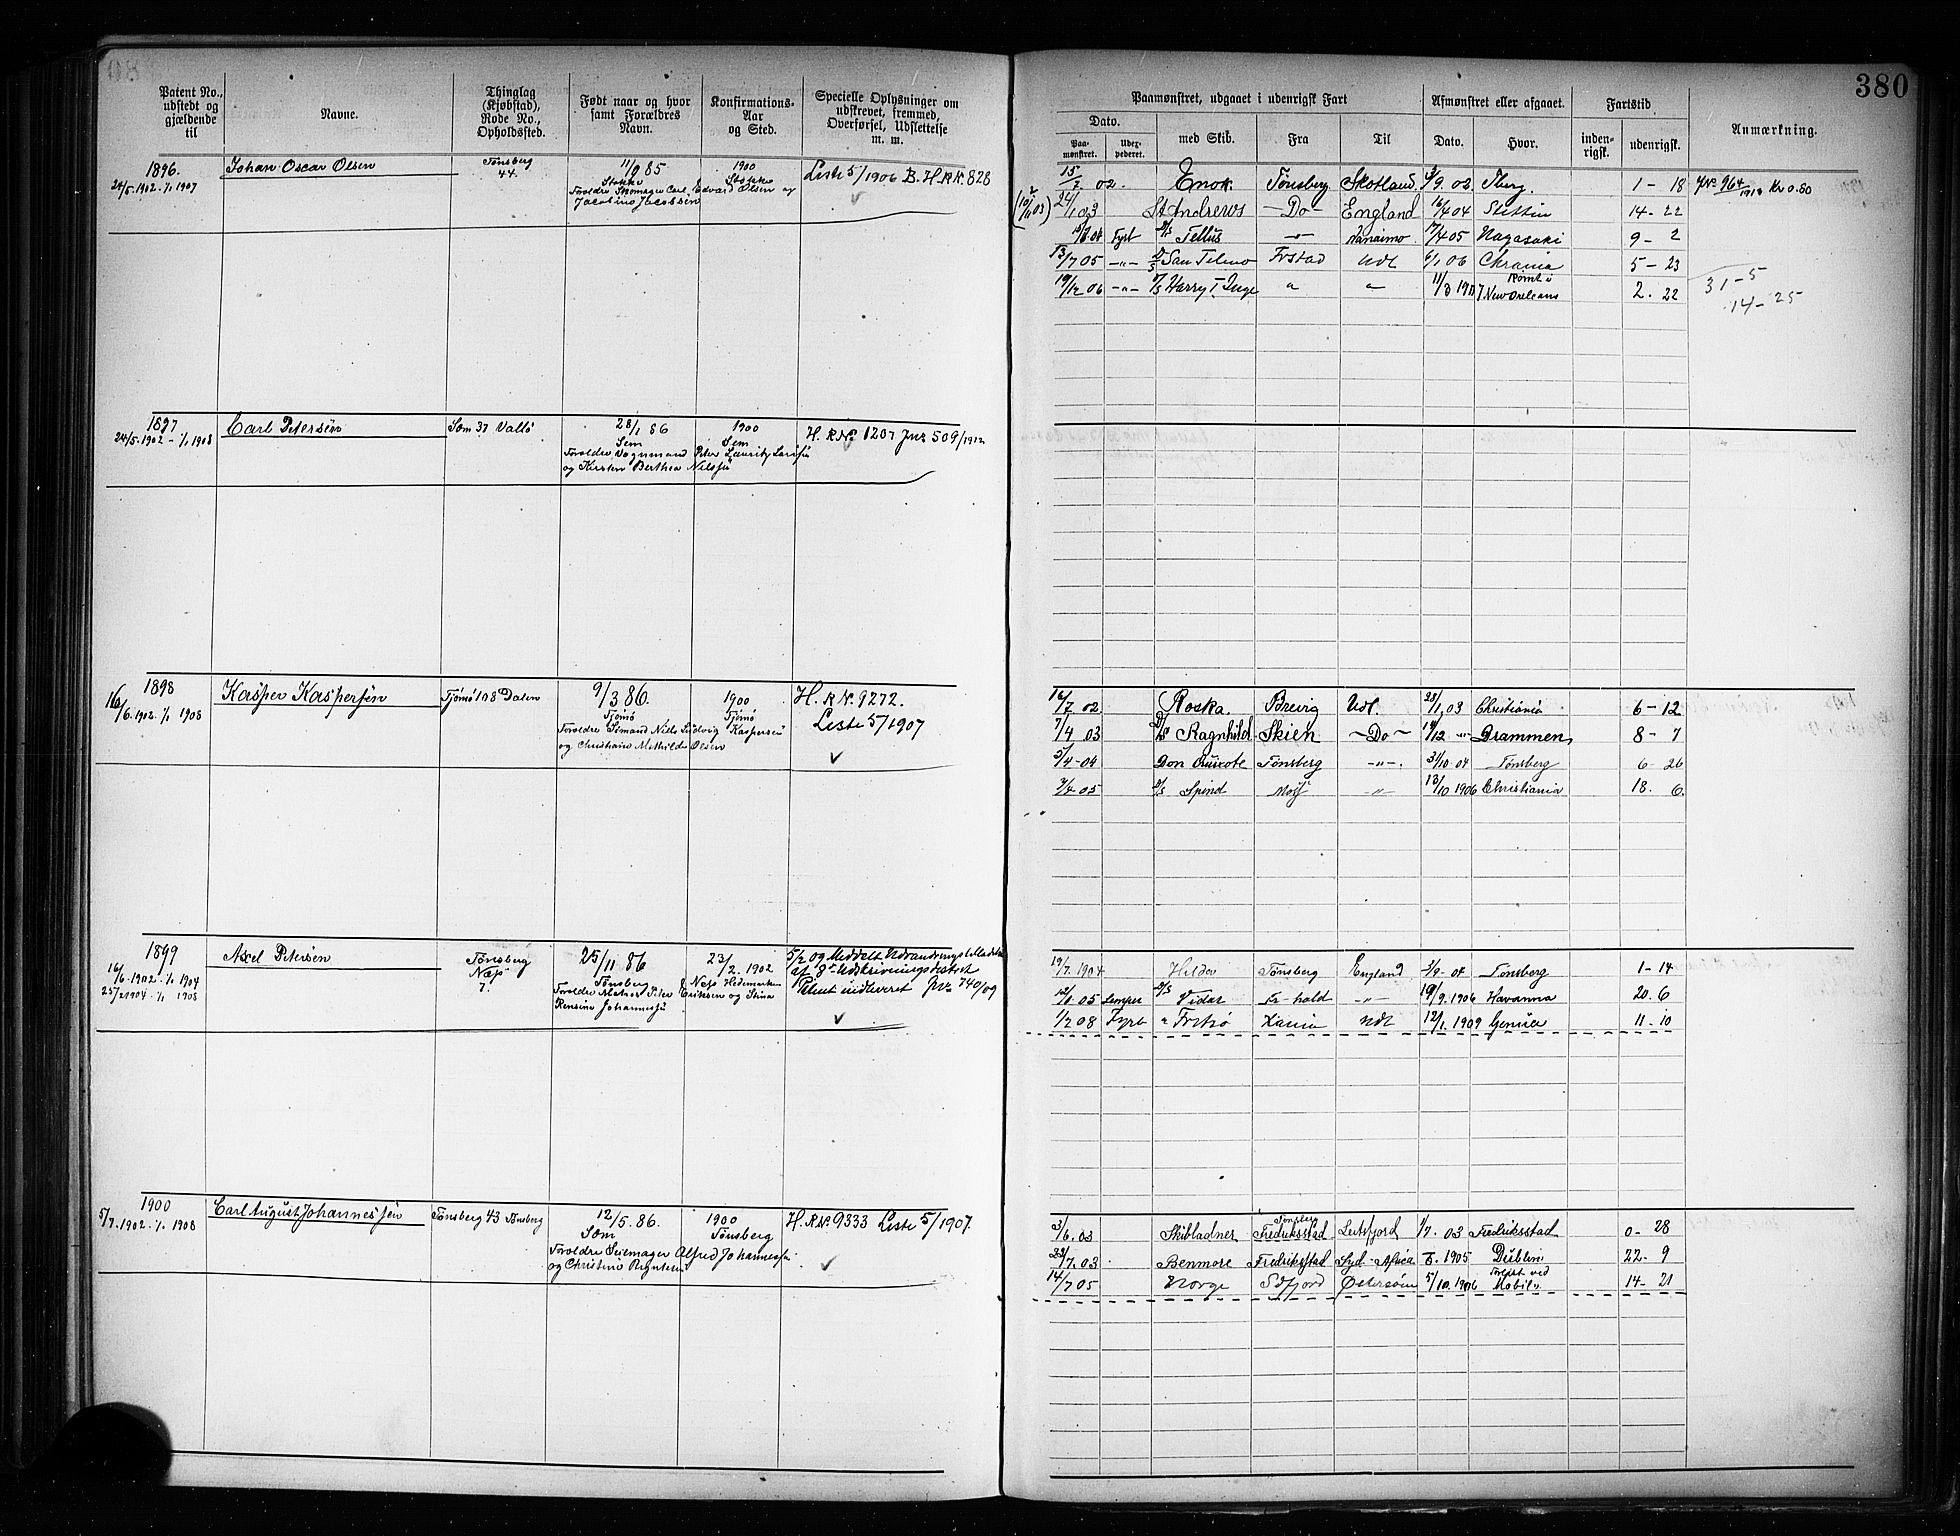 380
Patent No., udstedt og gjældende til
Navne.
Thinglag (Kjøbstad), Rode No., Opholdssted.
Født naar og hvor samt Forældres Navn.
Konfirmations-Aar og Sted.
Specielle Oplysninger om udskrevet, fremmed, Overførsel, Udslettelse m. m.
Paamønstret, udgaaet i udenrigsk Fart
Afmønstret eller afgaaet.
Fartstid
Anmærkning.
Dato.
Paa-mønstret.
med Skib.
Fra
Til
Dato.
Hvor.
inden-rigsk.
udenrigsk.
1896.
24/5.1902-1/1 1907
Johan Oscar Olsen
Tønsberg 44.
11/9 85
Stokke
Forældre Skomager Carl Edvard Olsen og
Jacobine Jacobsen
1900
Stokke
Liste 5/1906 B. H.R.N. 828
15/7 02. Enok Tønsberg Skotland 02 Tberg. 1-18
24/1 03 St Andrews Do England 16/4 04 Stettin 14-22
Fyrb D/S Tellus Nanaimo 17/4 05 Nagasaki 9-2
13/7 05 San Telmo Frstad Udl 6/1 06 Chrania 5-23
19/12 06 Harry T. Inge Rømt i New Orleans 2.22
31-5
14-25
1897
24/5.1902-1/1 1908
Carl Petersen
Sem 37 Vallø
28/1 86
Sem
Forældre Vognmand Peter Lauritz Larsen
og Kirsten Berthea Nilsen
1900
Sem
H. R.No 1207 Jnr 509/1912
1898
16/6.1902.1/1 1908
Kasper Kaspersen
Tjømø 108 Dalen
9/3 86.
Tjømø
Forældre Sømand Nills Ludvig Kaspersen
og Christiane Mathilde Olsen
1900
Tjømø
H. R.N. 9272.
Liste 5/1907
16/7 02 Roska. Brevig Udl. 28/1 03 Christiania 6-12
7/4 03 Ragnhild Skien Do 12 Drammen 8-7
5/4-04 Don Quixote Tønsberg 31/10.04 Tønsberg 6-26
D/S Spind Moss 13/10 1906 Christiania 18.6.
1899
16/6.1902.1/1 1904
25/2 1904.1/1 1908
Axel Petersen
Tønsberg
Næs
7.
25/11 86
Tønsberg
Forældre Peter Eriksen og Stina
Rensine Johannesen
23/2. 1902
Næs Hedemarken
5/2 09 Meddelt Udvandringstilladelse
af 8de Udskrivningsdistrikt
Patent indleveret jnr 740/09
19/7.1904 Hilda Tønsberg England 3/9.04 Tønsberg 1-14
12/1.05 Lemper D/S Vidar Fr-hald 19/9.1906 Havanna 20.6
1/2 08 Fyrb Fritzø Xania Udl 12/1.1909 Genua 11-10
1900
5/7.1902.1/1 1908
Carl August Johannessen
Tønsberg 43 Tønsberg
12/5.86.
Sem
Forældre Seilmager Alfred Johannesen
og Christine Reyntesen
1900
Tønsberg
H.R.No. 9333 Liste 5/1907.
3/6.03 Skibladner Tønsberg Fredriksstad 1/7.03 Fredriksstad 0-28
22/7.03 Benmore Fredriksstad Syd-Africa 1905 Dublin 22-9
14/7 05 Norge Sdfjord Østersøen 5/10.1906 Forlist ved Mobile 14-21